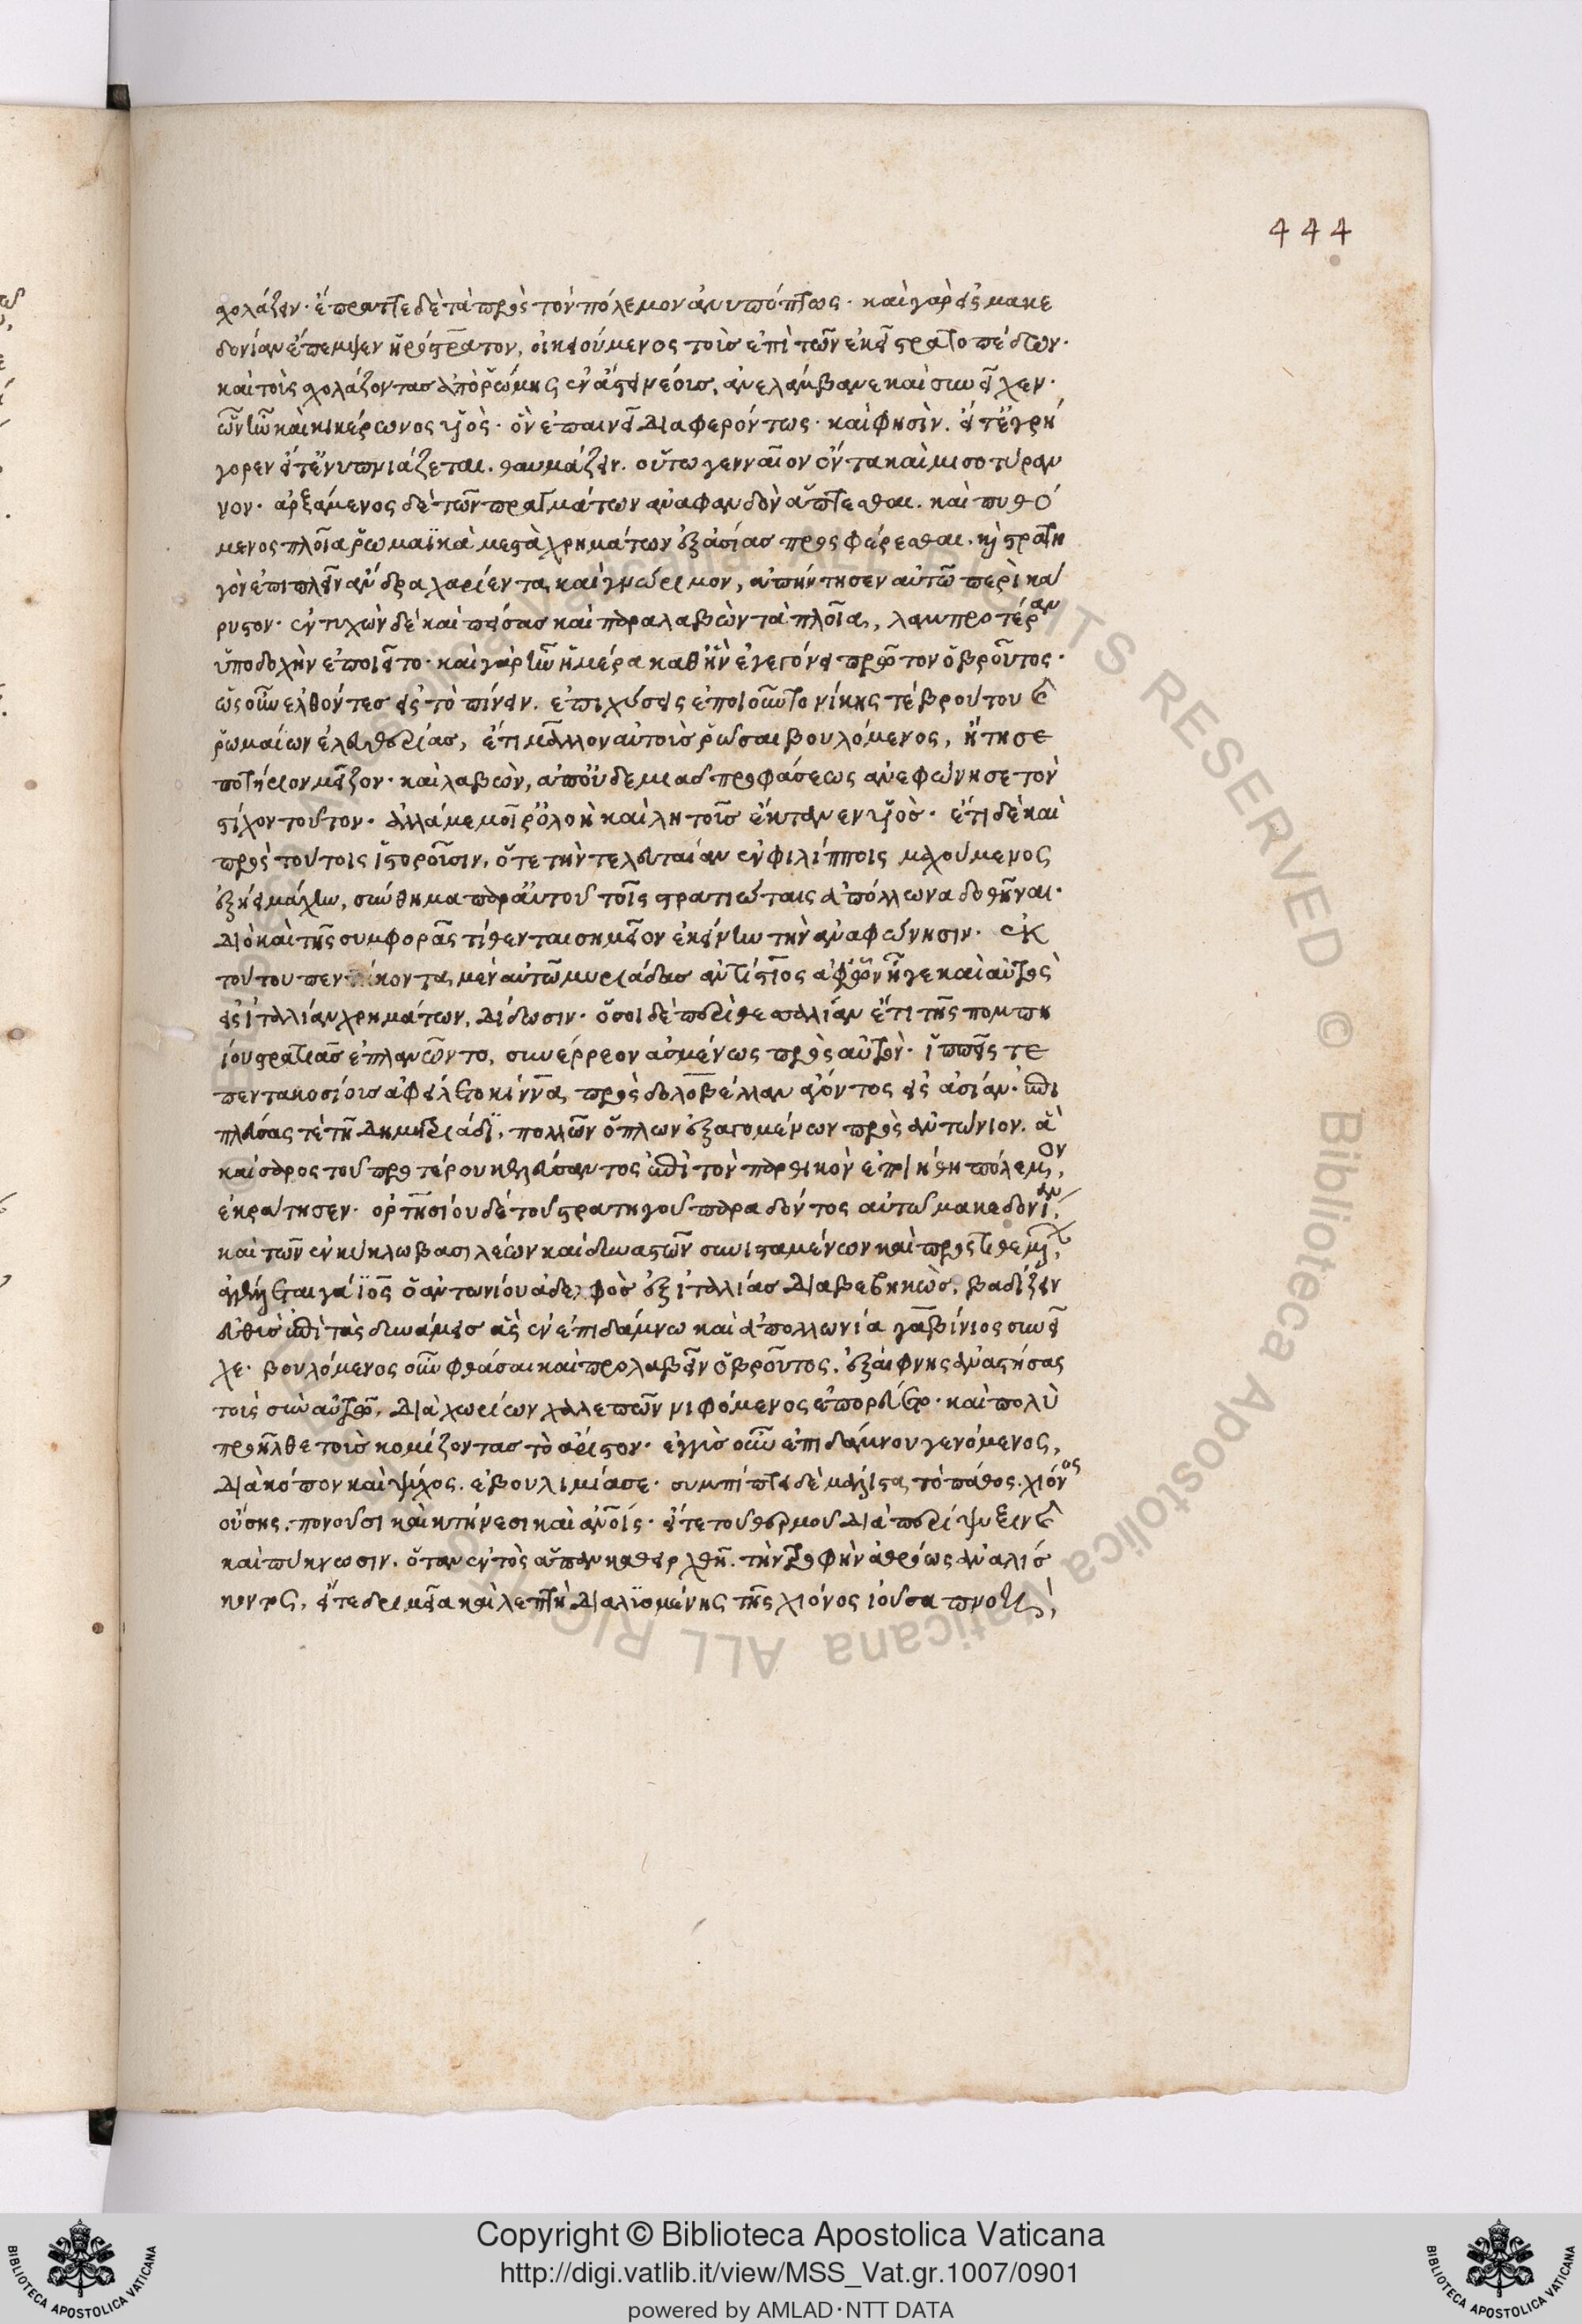 444
σχολάζειν· ἔπραττε δὲ τὰ πρὸς τὸν πόλεμον ἀνυπόπτως· καὶ γὰρ εἰς μακε
δονίαν ἔπεμψεν ἡρόστρατον, οἰκειούμενος τοὺς ἐπὶ τῶν ἐκεῖ στρατοπέδων·
καὶ τοὺς σχολάζοντας ἀπὸ ῥώμης ἐν ἄστει νέους, ἀνελάμβανε καὶ συνεῖχεν·
ὧν ἦν καὶ κικέρωνος υἱὸς· ὃν ἐπαινεῖ διαφερόντως· καὶ φησὶν. εἴτ' ἐγρή
γορεν εἴτ' ἐνυπνιάζεται. θαυμάζειν. οὕτω γενναῖον ὄντα καὶ μισοτύραν
νον· ἀρξάμενος δὲ τῶν πραγμάτων ἀναφανδὸν ἅπτεσθαι. καὶ πυθό
μενος πλοῖα ῥωμαϊκὰ μεστὰ χρημάτων ἐξ ἀσίας προσφέρεσθαι. καὶ στρατη
γὸν ἐπιπλεῖν ἄνδρα χαρίεντα καὶ γνώριμον, ἀπήντησεν αὐτῶ περὶ κά
ρυστον· ἐντυχὼν δὲ καὶ πείσας καὶ παραλαβὼν τὰ πλοῖα, λαμπροτέραν
ὑποδοχὴν ἐποιεῖτο· καὶ γὰρ ἦν ἡμέρα καθ' ἣν ἐγεγόνει πρῶτον ὁ βροῦτος·
ὡς οὖν ἐλθόντες εἰς τὸ πίνειν. ἐπιχύσεις ἐποιοῦντο νίκης τὲ βρούτου καὶ
ῥωμαίων ἐλευθερίας, ἔτι μᾶλλον αὐτοὺς ῥῶσαι βουλόμενος, ἤτησε
ποτήριον μεῖζον· καὶ λαβὼν, ἀπ' οὐδεμιᾶς προφάσεως ἀνεφώνησε τὸν
στίχον τοῦτον· ἀλλά με μοῖρ' ὀλοὴ καὶ λητοῦς ἔκτανεν υἱὸς· ἔτι δὲ καὶ
πρὸς τούτοις ἱστοροῦσιν, ὅτε τὴν τελευταίαν ἐν φιλίπποις μαχούμενος
ἐξήει μάχην, σύνθημα παρ' αὐτοῦ τοῖς στρατιώταις ἀπόλλωνα δοθῆναι·
διὸ καὶ τῆς συμφορᾶς τίθενται σημεῖον ἐκείνην τὴν ἀναφώνησιν· ἐκ
τούτου πεντήκοντα μὲν αὐτῶ μυριάδας ἀντίστιος ἀφ' ὧν ἦγε καὶ αὐτὸς
εἰς ἰταλίαν χρημάτων, δίδωσιν· ὅσοι δὲ περὶ θεσσαλίαν ἔτι τῆς πομπη
ίου στρατιᾶς ἐπλανῶντο, συνέρρεον ἀσμένως πρὸς αὐτὸν· ἱππεῖς τε
πεντακοσίους ἀφείλετο κίννα πρὸς δολοβέλλαν ἄγοντος εἰς ἀσίαν· ἐπι
πλεύσας τὲ τῆ δημητριάδι, πολλῶν ὅπλων ἐξαγομένων πρὸς ἀντώνιον. ἃ
καίσαρος τοῦ προτέρου κελεύσαντος ἐπὶ τὸν παρθικὸν ἐποιήθη πόλεμον,
ἐκράτησεν· ὁρτησίου δὲ τοῦ στρατηγοῦ παραδόντος αὐτῶ μακεδονίαν,
καὶ τῶν ἐν κύκλω βασιλέων καὶ δυναστῶν συνισταμένων καὶ προστιθεμένων,
ἀγγέλλεται γάϊος ὁ ἀντωνίου ἀδελφὸς ἐξ ἰταλίας διαβεβηκὼς, βαδίζειν
εὐθὺς ἐπὶ τὰς δυνάμεις ἃς ἐν ἐπιδάμνω καὶ ἀπολλωνία γαβίνιος συνεῖ
χε· βουλόμενος οὖν φθάσαι καὶ προλαβεῖν ὁ βροῦτος, ἐξαίφνης ἀναστήσας
τοὺς σὺν αὐτῶ, διὰ χωρίων χαλεπῶν νιφόμενος ἐπορεύετο· καὶ πολὺ
προῆλθε τοὺς κομίζοντας τὸ ἄριστον· ἐγγὺς οὖν ἐπιδάμνου γενόμενος,
διὰ κόπον καὶ ψῦχος. ἐβουλιμίασε· συμπίπτει δὲ μάλιστα τὸ πάθος χιόνος
οὔσης. πονοῦσι καὶ κτήνεσι καὶ ἀνοῖς· εἴτε τοῦ θερμοῦ διὰ περίψυξιν καὶ
καὶ πύκνωσιν, ὅταν ἐντὸς ἅπαν καθειρχθῆ. τὴν τροφὴν ἀθρόως ἀναλίσ
κοντος, εἴτε δριμεῖα καὶ λεπτὴ διαλυομένης τῆς χιόνος ἰοῦσα πνοὴ,
Copyright © Biblioteca Apostolica Vaticana
http://digi.vatlib.it/view/MSS_Vat.gr.1007/0901
powered by AMLAD·NTT DATA